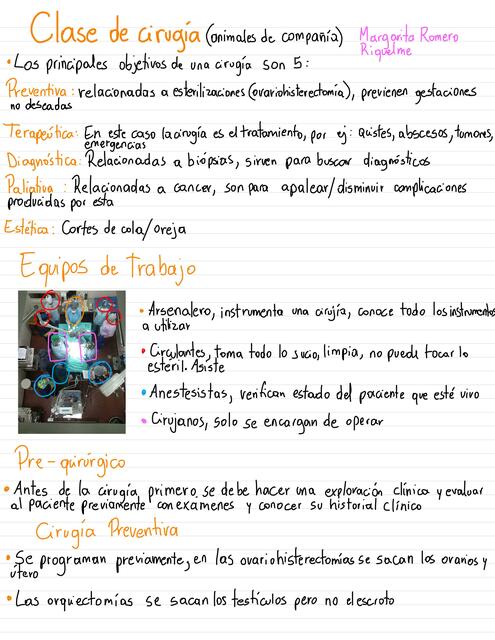 Clase de cirugía (animales de compañía)
Margarita Romero
Riquelme
• Los principales objetivos de una cirugía son 5:
Preventiva: relacionadas a esterilizaciones (ovariohisterectomía), previenen gestaciones
no deseadas
Terapeútica: En este caso la cirugía es el tratamiento, por ej: quistes, abscesos, tumores,
emergencias
Diagnóstica: Relacionadas a biópsias, sirven para buscar diagnósticos
Paliativa: Relacionadas a cancer, son para apalear/disminuir complicaciones
producidas por esta
Estética: Cortes de cola/oreja
Equipos de Trabajo
• Arsenalero, instrumenta una cirujía, conoce todo los instrumentos
a utilizar
• Circulantes, toma todo lo sucio, limpia, no puede tocar lo
estéril. Asiste
• Anestesistas, verifican estado del paciente que esté vivo
• Cirujanos, solo se encargan de operar
Pre-quirúrgico
• Antes de la cirugía primero se debe hacer una exploración clínica y evaluar
al paciente previamente con examenes y conocer su historial clínico
Cirugía Preventiva
• Se programan previamente, en las ovariohisterectomías se sacan los ovarios y
útero
• Las orquiectomías se sacan los testículos pero no el escroto